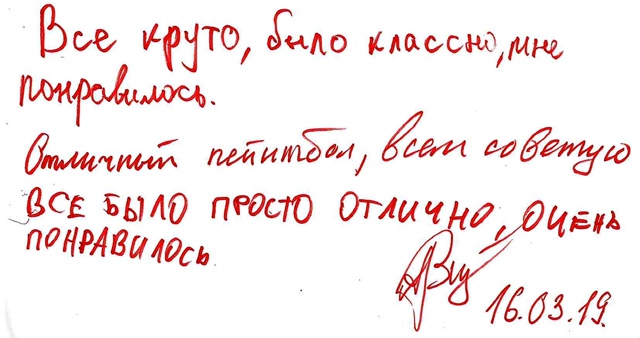 Все круто, было классно, мне
понравилось.
Отличный пейнтбол, всем советую
ВСЕ БЫЛО ПРОСТО ОТЛИЧНО, ОЧЕНЬ
ПОНРАВИЛОСЬ
16.03.19.